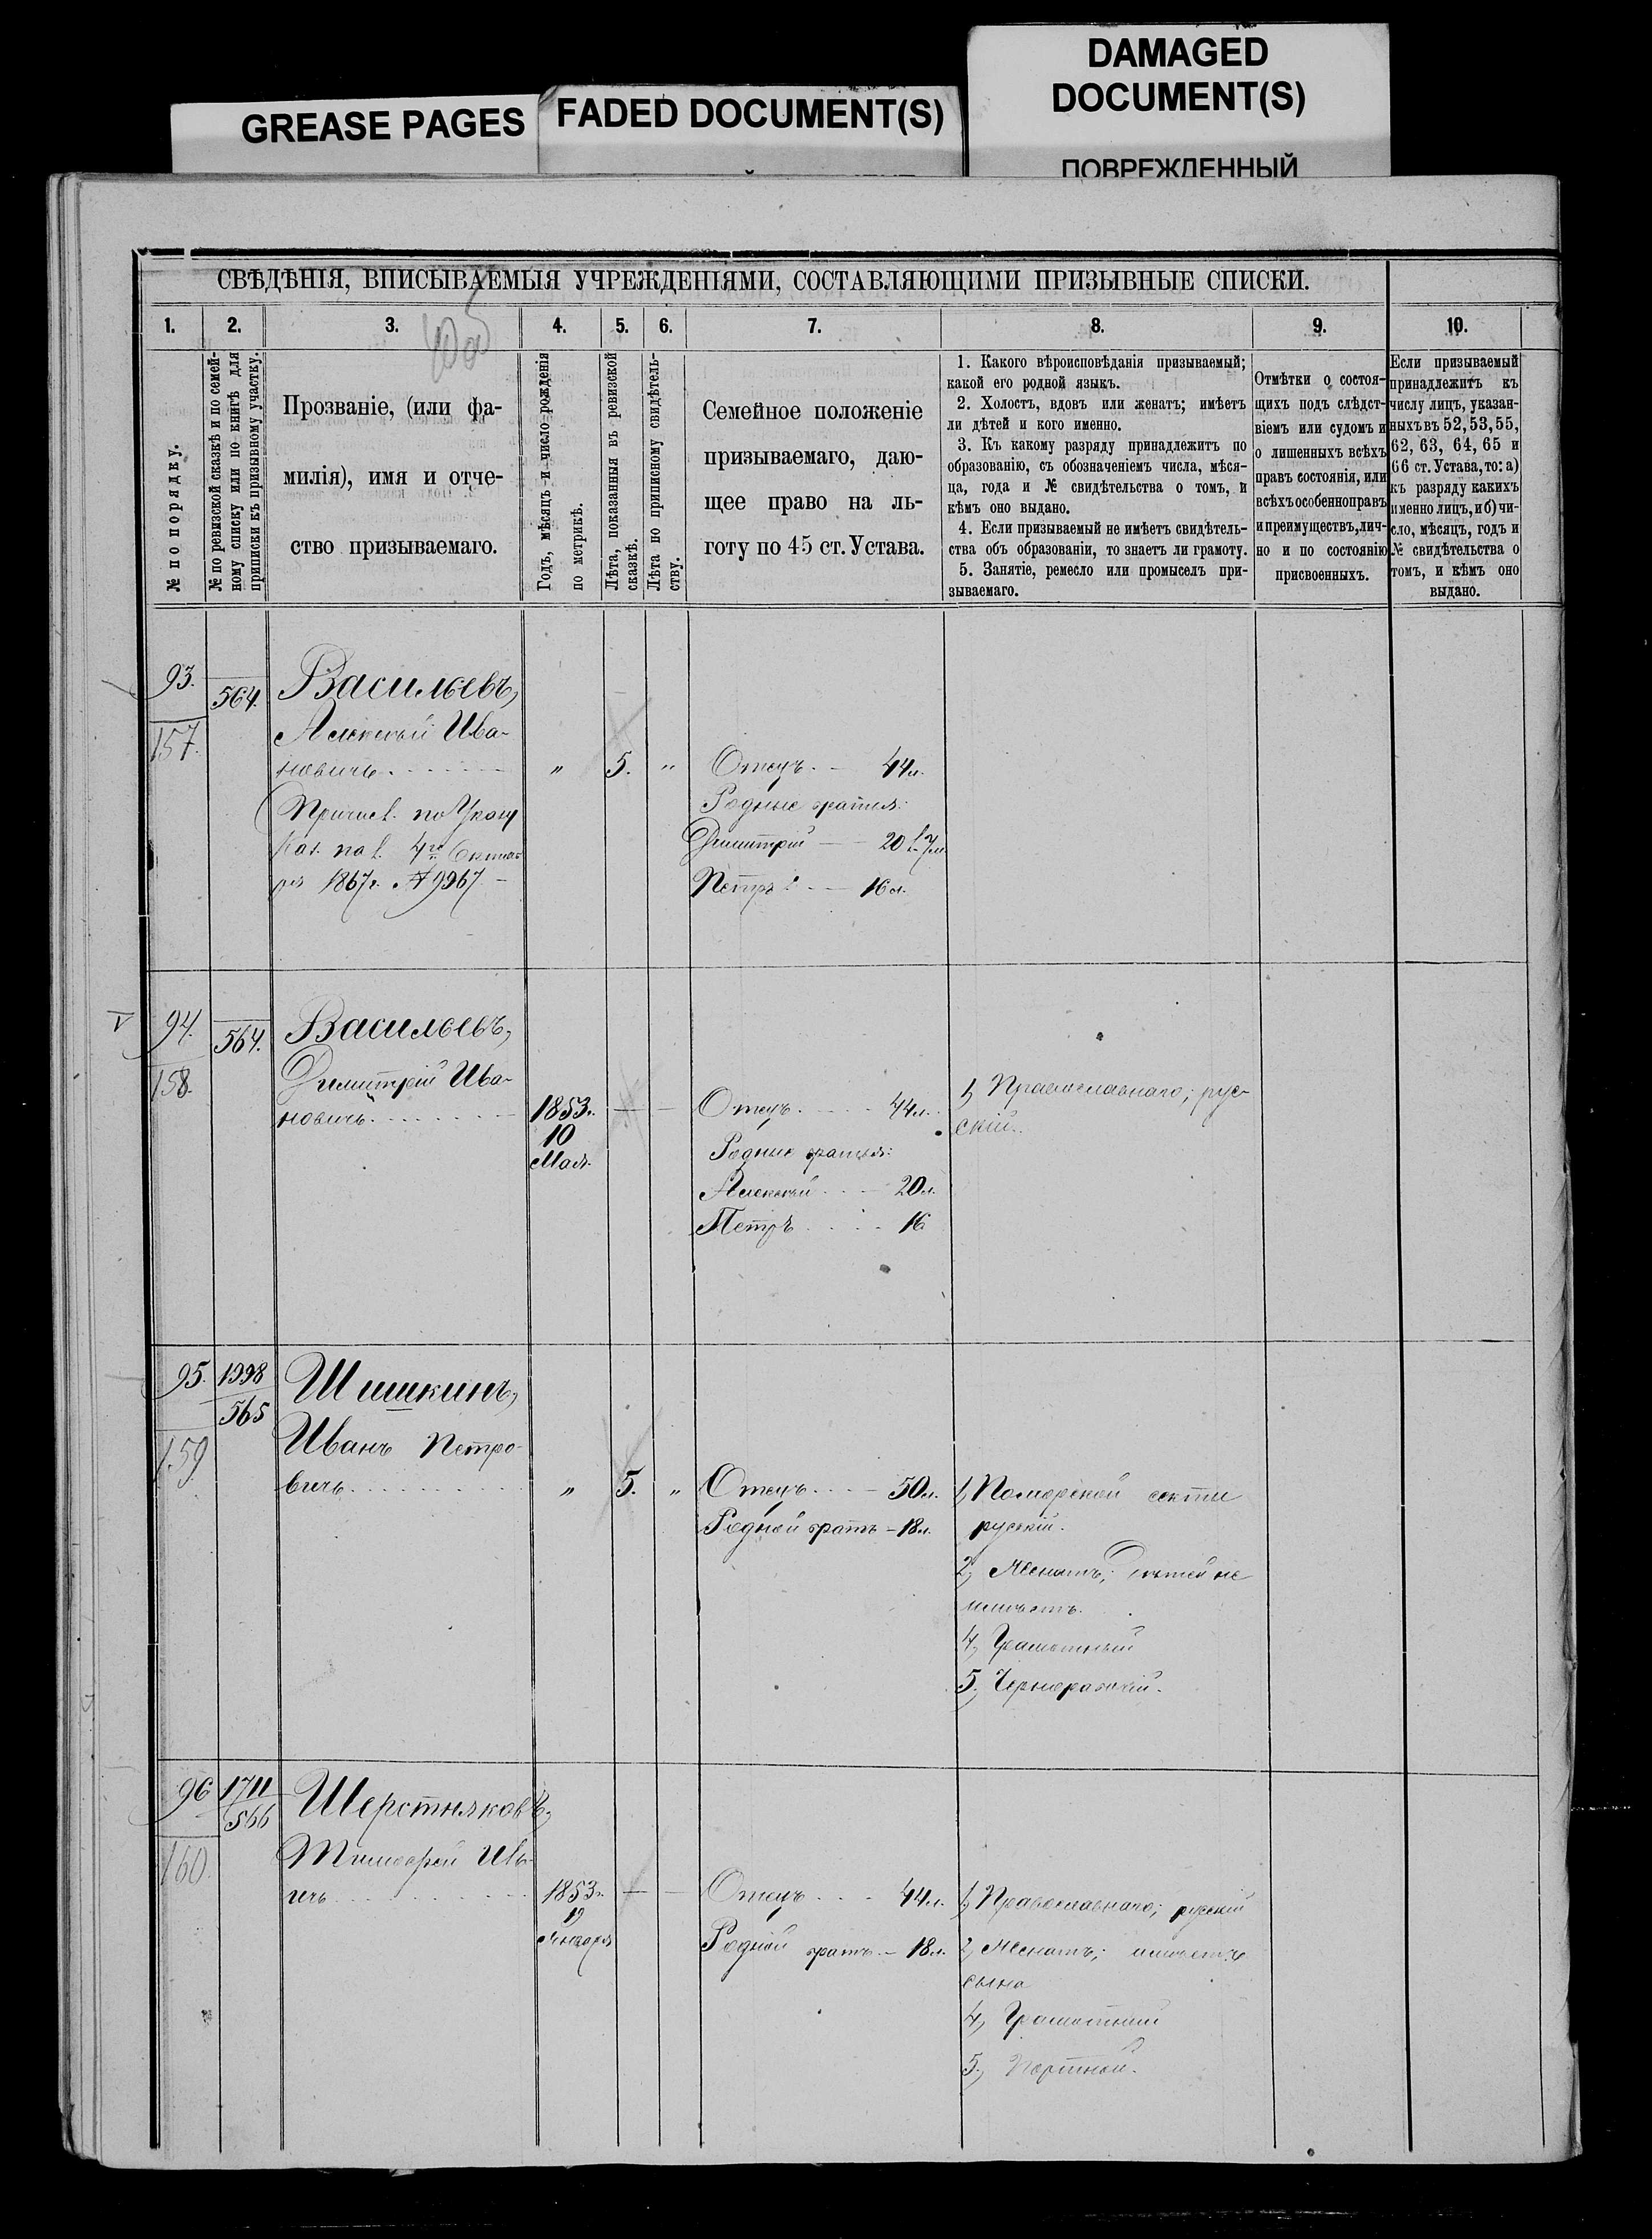 GREASE PAGES
FADED DOCUMENT(S)
DAMAGED
DOCUMENT(S)
ПОВРЕЖДЕННЫЙ
СВѢДѢНІЯ, ВПИСЫВАЕМЫЯ УЧРЕЖДЕНІЯМИ, СОСТАВЛЯЮЩИМИ ПРИЗЫВНЫЕ СПИСКИ.
1. 2. 3. 4. 5. 6. 7. 8. 9. 10.
№ по порядку.
№ по ревизской сказкѣ и по семей-
ному списку или по книгѣ для
приписки къ призывному участку.
Прозваніе, (или фа-
милія), имя и отче-
ство призываемаго.
Годъ, мѣсяцъ и число рожденія
по метрикѣ.
Лѣта, показанныя въ ревизской
сказкѣ.
Лѣта по приписному свидѣтель-
ству.
Семейное положеніе
призываемаго, даю-
щее право на ль-
готу по 45 ст. Устава.
1. Какого вѣроисповѣданія призываемый;
какой его родной языкъ.
2. Холостъ, вдовъ или женатъ; имѣетъ
ли дѣтей и кого именно.
3. Къ какому разряду принадлежитъ по
образованію, съ обозначеніемъ числа, мѣся-
ца, года и № свидѣтельства о томъ, и
кѣмъ оно выдано.
4. Если призываемый не имѣетъ свидѣтель-
ства объ образованіи, то знаетъ ли грамоту.
5. Занятіе, ремесло или промыселъ при-
зываемаго.
Отмѣтки о состоя-
щихъ подъ слѣдст-
віемъ или судомъ и
о лишенныхъ всѣхъ
правъ состоянія, или
всѣхъ особенно правъ
и преимуществъ, лич-
но и по состоянію
присвоенныхъ.
Если призываемый
принадлежитъ къ
числу лицъ, указан-
ныхъ въ 52, 53, 55,
62, 63, 64, 65 и
66 ст. Устава, то: а)
къ разряду какихъ
именно лицъ, и б) чи-
сло, мѣсяцъ, годъ и
№ свидѣтельства о
томъ, и кѣмъ оно
выдано.
93. 564. Васильевъ,
157. Алексѣй Ива-
новичъ " 5. " Отецъ 44 л.
Причисл. по Указу Родные братья:
Каз. пал. 4го Октяб- Димитрій 20 л.
ря 1867 г. № 9967 Петръ 16 л.
V 94. 564. Васильевъ,
158. Димитрій Ива-
новичъ 1853 г. — — Отецъ 44 л. 1, Православнаго; рус-
10 скій.
Мая. Родные братья:
Алексѣй 20 л.
Петръ 16
95. 1998 Шишкинъ,
565
159 Иванъ Петро-
вичъ " 5. " Отецъ 50 л. 1, Поморской секты
Родной братъ — 18 л. русскій.
2, Женатъ; дѣтей не
имѣетъ.
4, Грамотный
5, Чернорабочій.
96 1711 Шерстняковъ,
566
160 Тимофей Ив-
ичъ 1853 г. — — Отецъ 44 л. 1, Православнаго; русскій
19
Января Родной братъ — 18 л. 2, Женатъ; имѣетъ
сына
4, Грамотный
5, Портной.